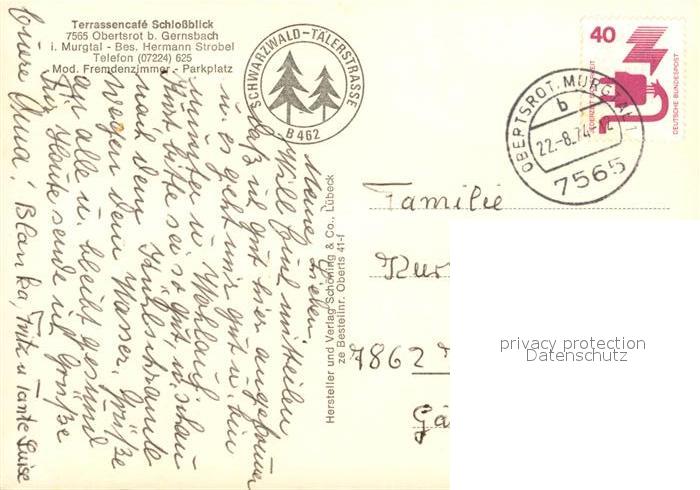 Terrassencafé Schloßblick
7565 Obertsrot b. Gernsbach
i. Murgtal - Bes. Hermann Strobel
Telefon (07224) 625
Mod. Fremdenzimmer - Parkplatz
SCHWARZWALD-TÄLERSTRASSE
B 462
40
JEDERZEIT SICHERHEIT
DEUTSCHE BUNDESPOST
OBERTSROT, MURGTAL 1
b
22.-8.74-12
7565
Meine Lieben
Will Euch mitteilen
daß ich gut hier angekommen
u. es geht mir gut u. bin
munter u. Wohlauf.
Anna bitte sei so gut, u. schau
nach dem Kühlschrank
wegen dem Wasser. Grüße
an alle u. bleibt gesund
Für heute sende ich Grüße
Eure Anna! Blanka, Fritz u Tante Luise
Hersteller und Verlag Schöning & Co., Lübeck
ze Bestellnr. Oberts 41-f
Familie
Kur
7862
Gä
privacy protection
Datenschutz